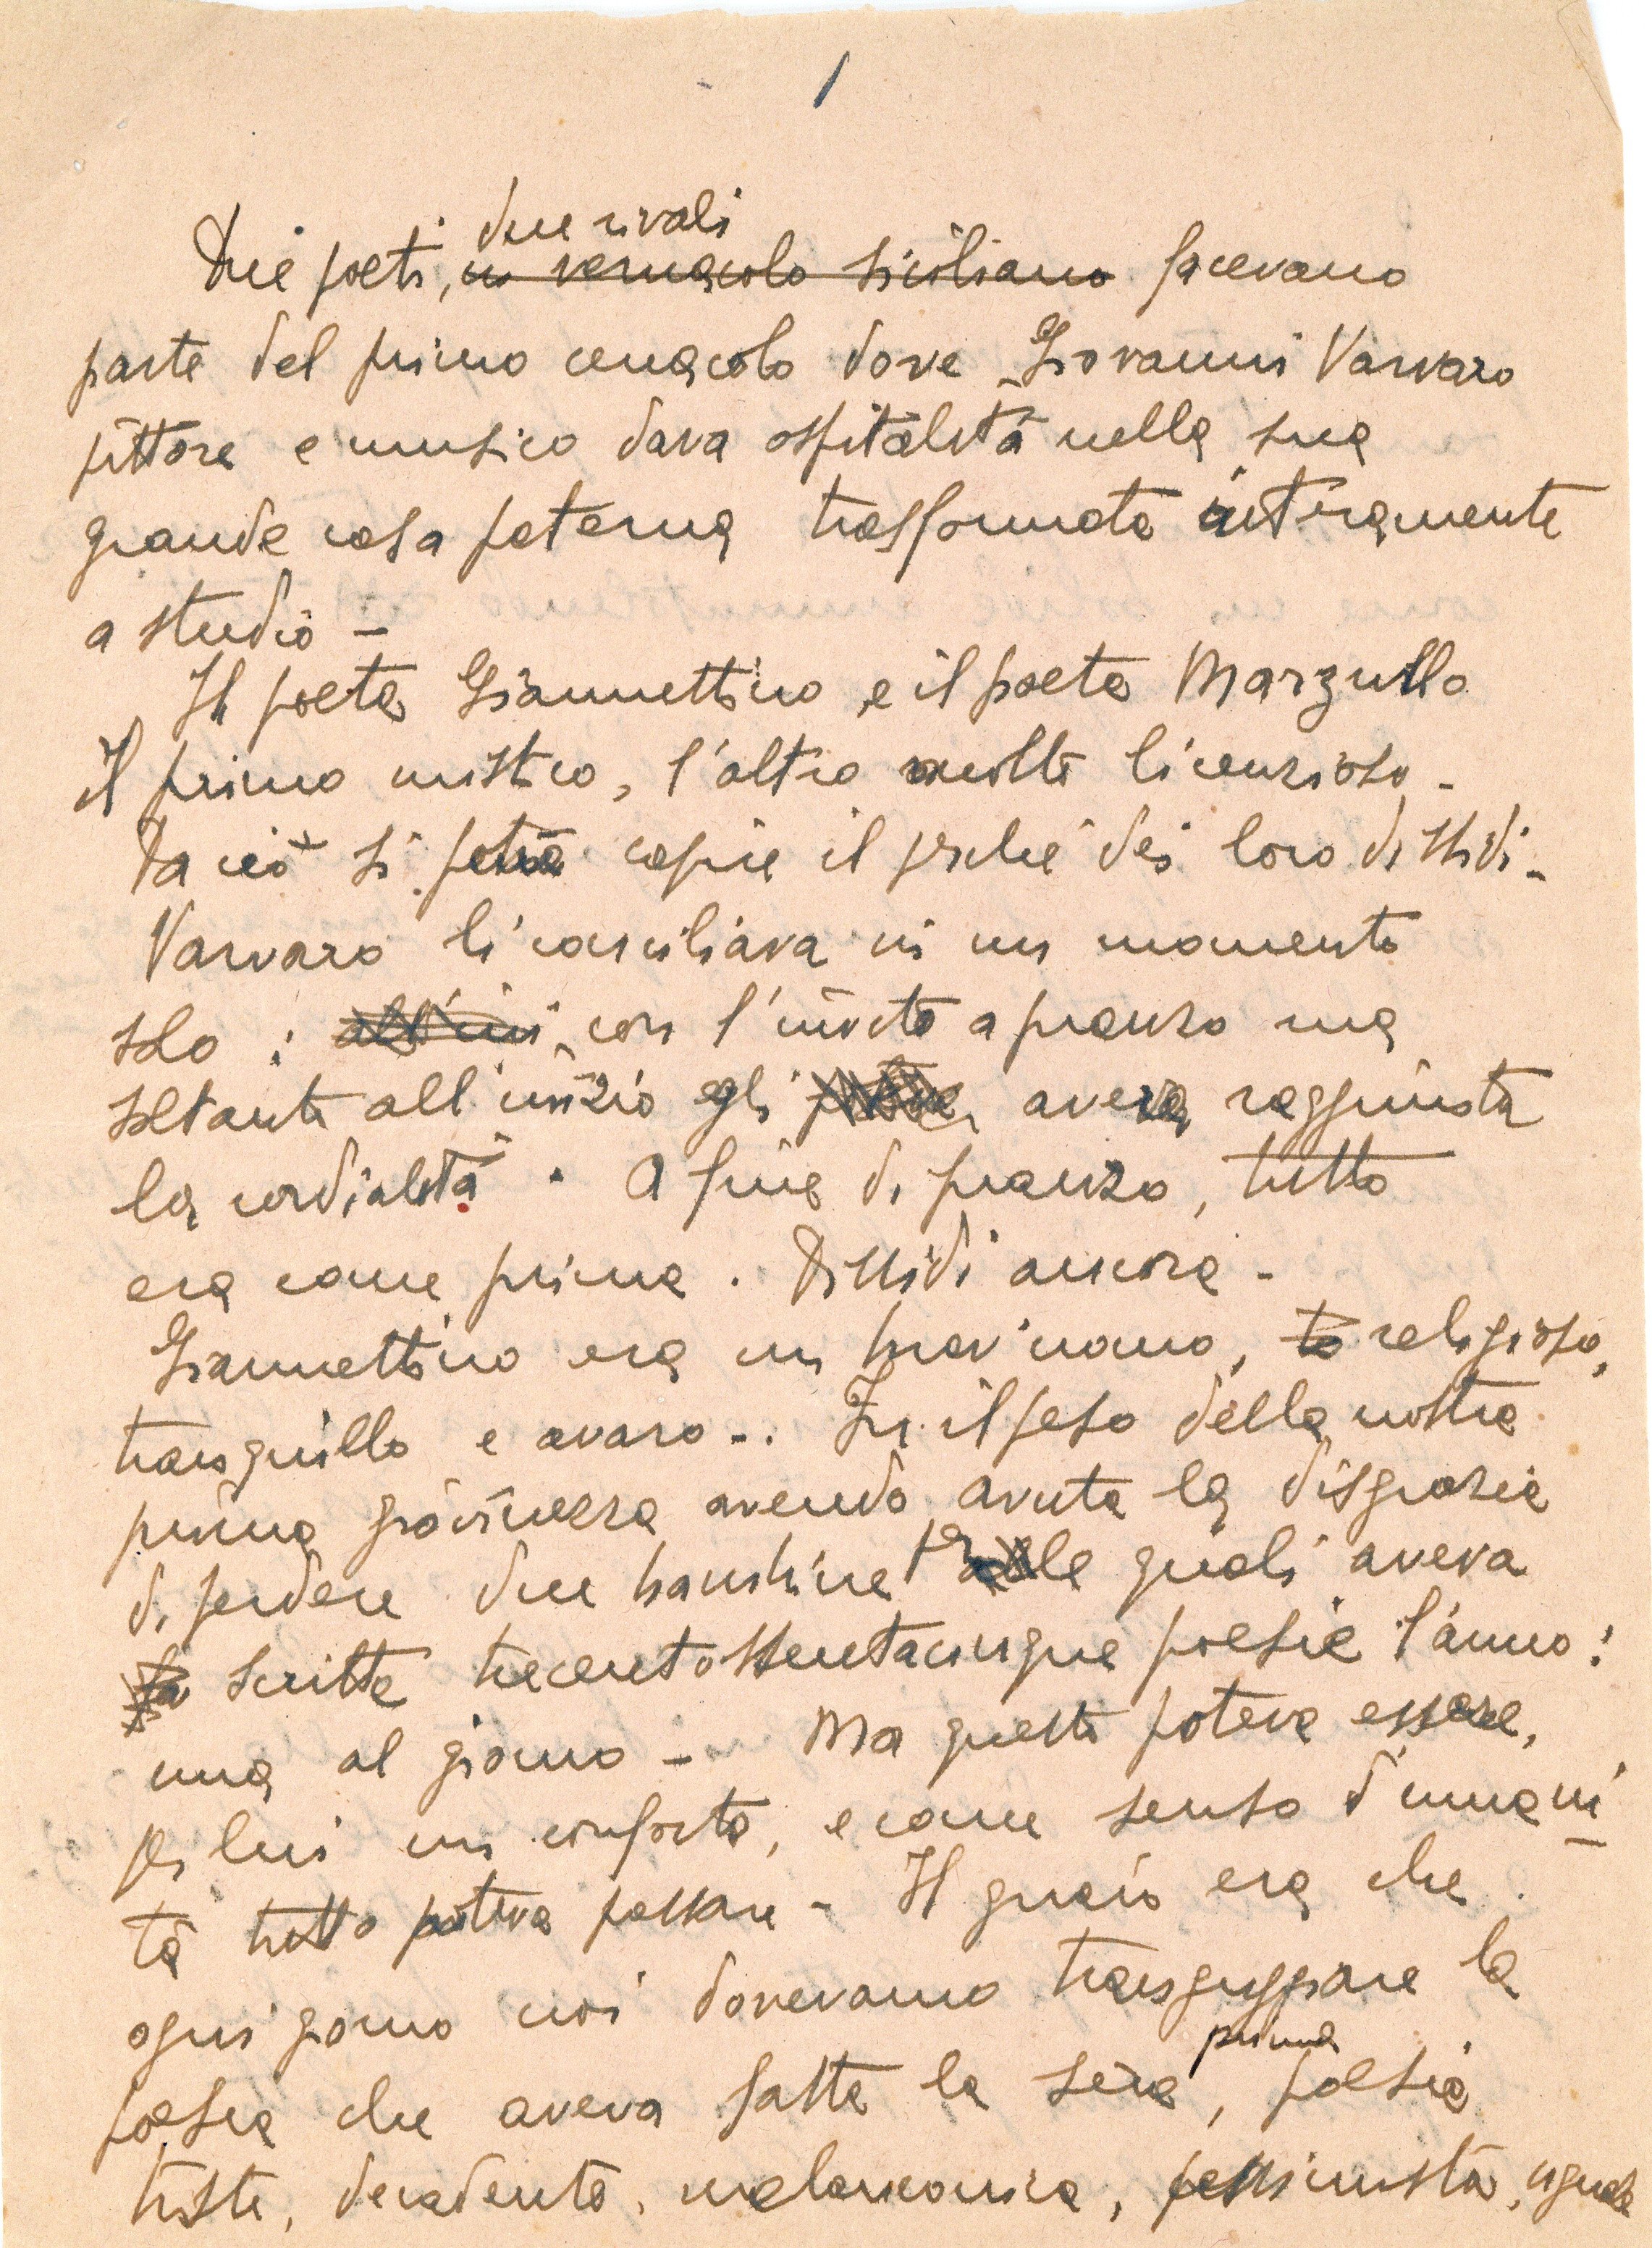 1
due rivali
Due poeti, in vernacolo siciliano facevano
parte del primo cenacolo dove Giovanni Varvaro
pittore e musico dava ospitalità nella sua
grande casa paterna trasformata interamente
a studio -
Il poeta Giannettino e il poeta Marzullo
il primo mistico, l'altro molto licenzioso -
Da ciò si potrà capire il perché dei loro dissidi -
Varvaro li conciliava in un momento
solo : con l'invito a pranzo ma
soltanto all'inizio egli aveva raggiunta
la cordialità. A fine di pranzo, tutto
era come prima. Dissidi ancora -
Giannettino era un brav'uomo, religioso,
tranquillo e avaro -. Fu il peso della nostra
prima giovinezza avendo avuta la disgrazia
di perdere due bambine quali aveva
scritte trecentosessentacinque poesie l'anno :
una al giorno - Ma questo poteva essere,
per lui un conforto, e come senso d'umani
tà tutto poteva passare - Il guaio era che
ogni giorno noi dovevamo trangugiare la
prima
poesia che aveva fatta la sera, poesia
triste, decadente, melanconica, pessimista, uguale